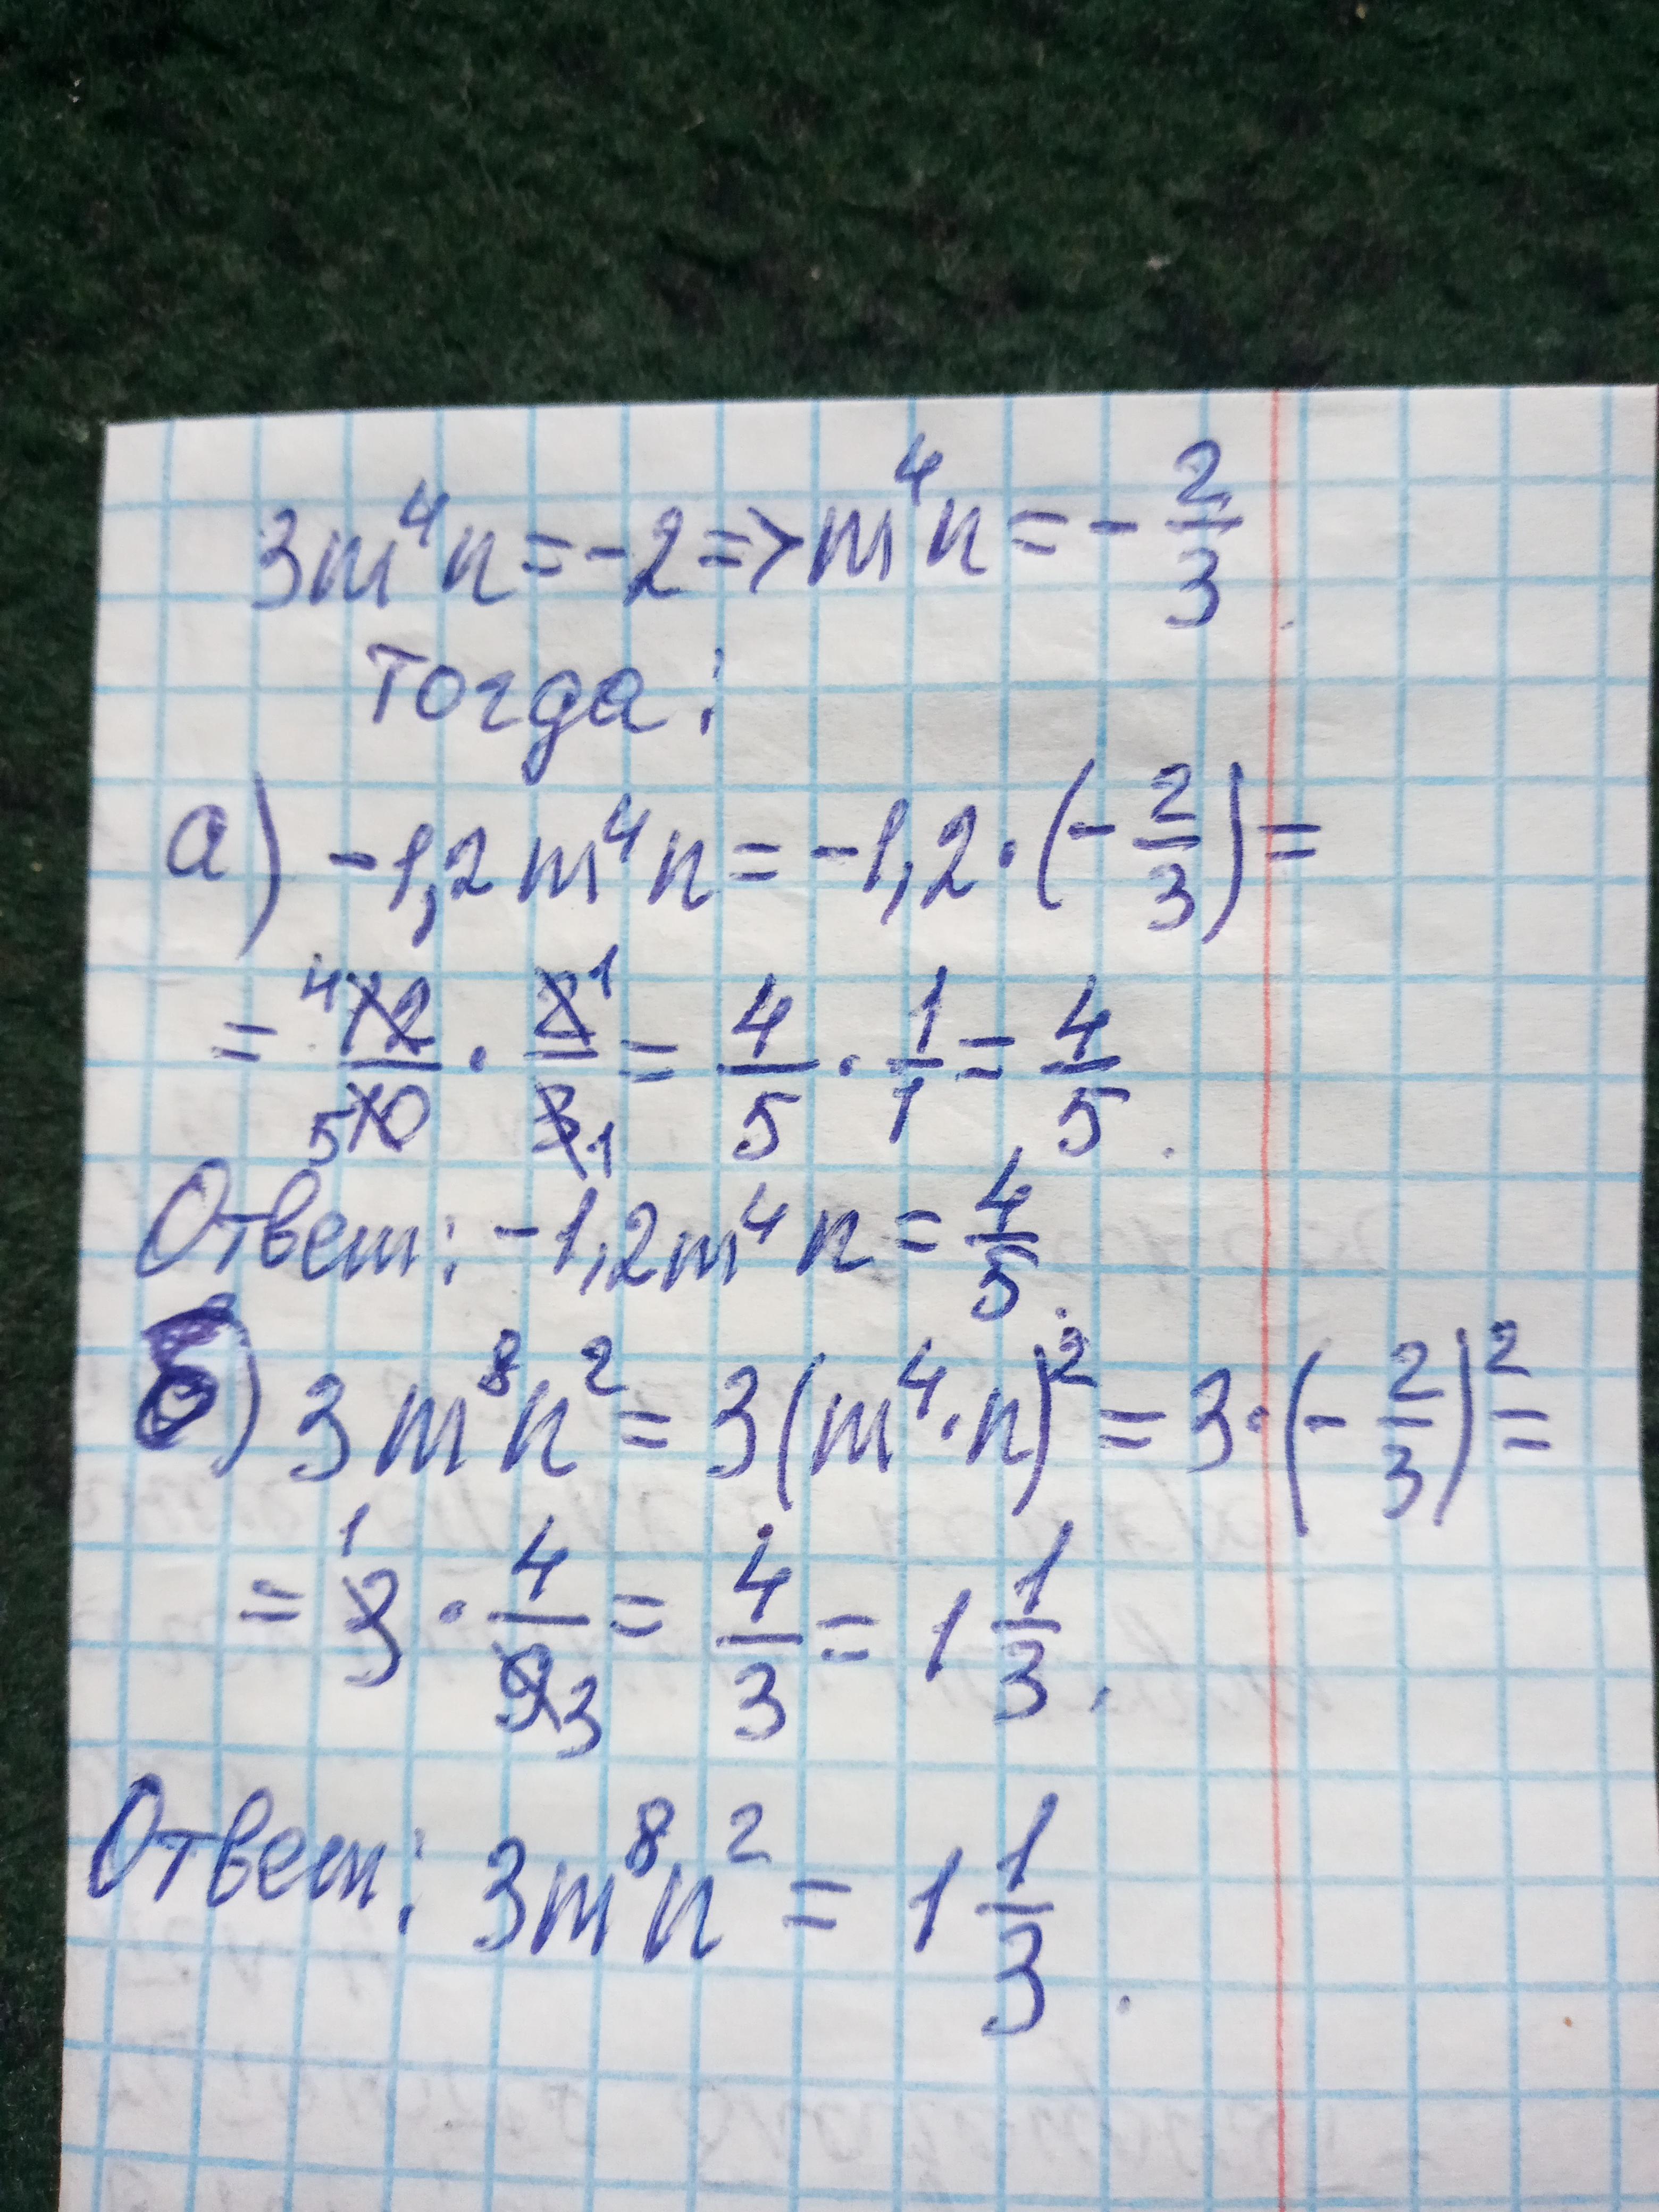 3m⁴n=-2=>m⁴n=-2/3.
тогда:
а) -1,2m⁴n=-1,2·(-2/3)=
=12/10·2/3=4/5·1/1=4/5.
Ответ: -1,2m⁴n=4/5.
б) 3m⁸n²=3(m⁴·n)²=3·(-2/3)²=
=3·4/9=4/3=1 1/3.
Ответ: 3m⁸n²=1 1/3.